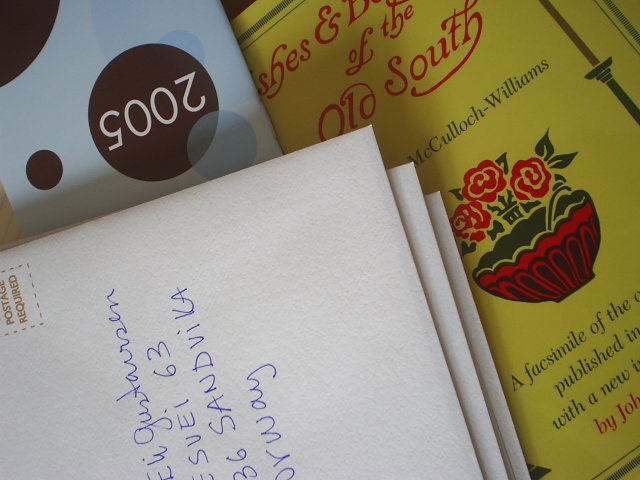 2005
shes & B
of the
Old South
McCulloch-Williams
A facsimile of the
published in
with a new
by Joh
POSTAGE
REQUIRED
Gustavsen
ESVEI 63
36 SANDVIKA
rway